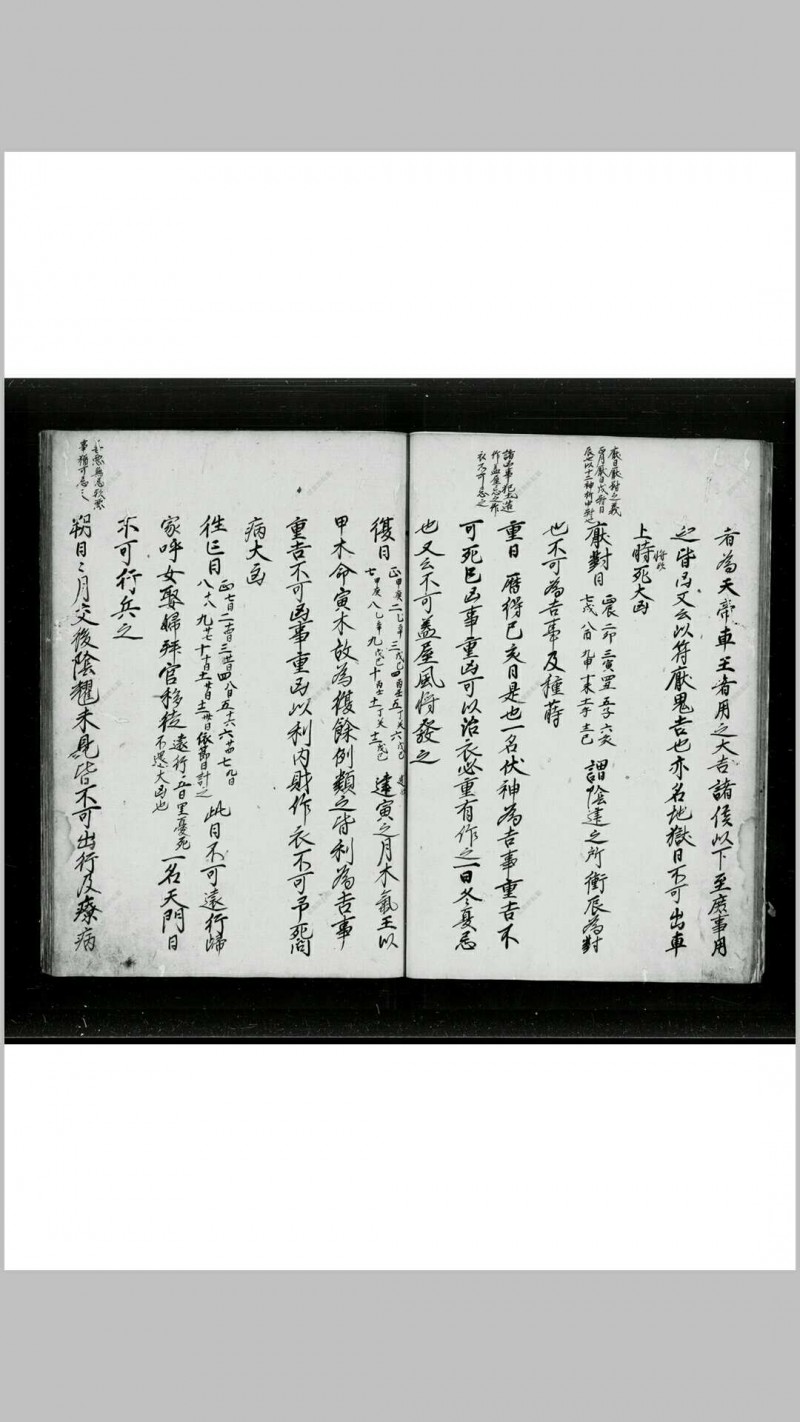 者為天帝車王者用之大吉諸侯以下至庶事用
之皆凶又云以符厭鬼吉也亦名地獄日不可出車
上時死大凶
厭對日 正辰二卯三寅四丑五子六亥
七戌八酉九申十未十一午十二巳 謂陰建之所衝辰為對
也不可為吉事及種蒔
重日 曆得巳亥日是也一名伏神為吉事重吉不
可死巳凶事重凶可以治衣必重有作之一曰冬夏忌
也又云不可蓋屋風將發之
復日 正甲庚二乙辛三戊己四丙壬五丁癸六戊己
七甲庚八乙辛九戊己十丙壬十一丁癸十二戊己 建寅之月木氣王以
甲木命寅木故為復餘例類之皆利為吉事
重吉不可凶事重凶以利內財作衣不可吊死問
病大凶
往亡日 正七日二十四日三廿一日四八日五十六六廿四七九日
八十八九廿七十十日十一廿日十二卅日依節日計之 此日不可遠行歸
家呼女娶婦拜官移徙 遠行五百里憂死
不還大凶也 一名天門日
不可行兵之
朔日 日月交後陰耀未見皆不可出行及療病